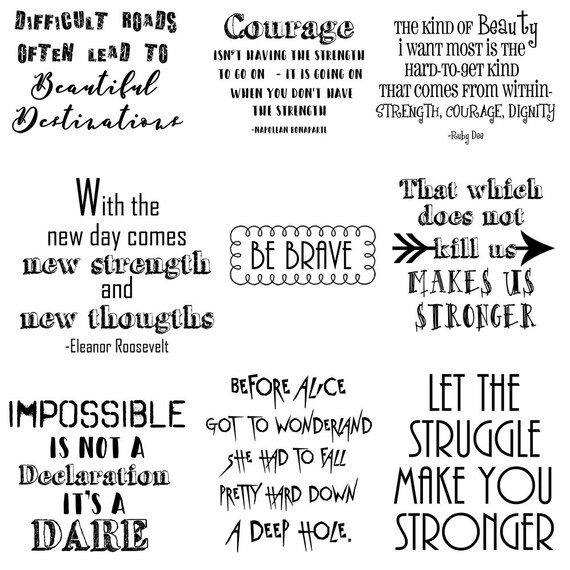 DIFFICULT ROADS
OFTEN LEAD TO
Beautiful
Destinations
Courage
ISN'T HAVING THE STRENGTH
TO GO ON - IT IS GOING ON
WHEN YOU DON'T HAVE
THE STRENGTH
-NAPOLEAN BONAPARTE
THE KIND OF BeauTy
i WANT MOST iS THE
HARD-TO-GET KIND
THAT COMES FROM WITHIN-
STRENGTH, COURAGE, DIGNITY
-Ruby Dee
With the
new day comes
new strength
and
new thougths
-Eleanor Roosevelt
BE BRAVE
That which
does not
kill us
MAKES US
STRONGER
IMPOSSIBLE
IS NOT A
Declaration
IT'S A
DARE
BEFORE ALICE
GOT TO WONDERLAND
SHE HAD TO FALL
PRETTY HARD DOWN
A DEEP HOLE.
LET THE
STRUGGLE
MAKE YOU
STRONGER